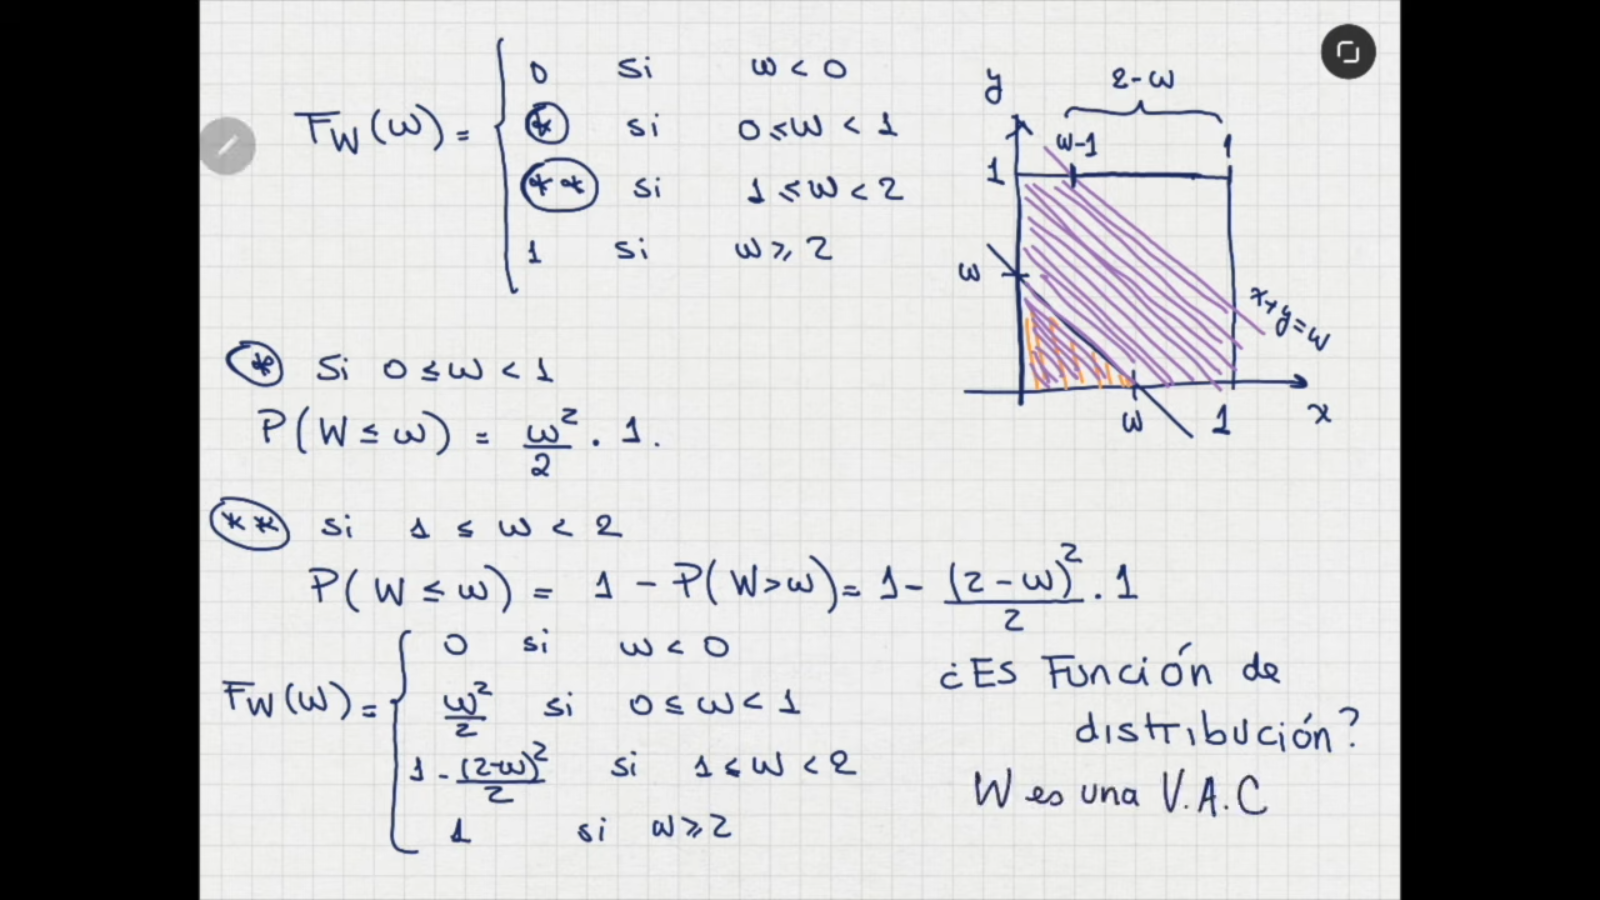 F_W(ω) = { 0 si ω < 0
(*) si 0 ≤ ω < 1
(**) si 1 ≤ ω < 2
1 si ω ≥ 2
y
2-ω
ω-1 1
1
ω
x+y=ω
ω 1 x
(*) Si 0 ≤ ω < 1
P(W ≤ ω) = ω²/2 . 1.
(**) si 1 ≤ ω < 2
P(W ≤ ω) = 1 - P(W>ω) = 1 - (2-ω)²/2 . 1
F_W(ω) = { 0 si ω < 0
ω²/2 si 0 ≤ ω < 1
1 - (2-ω)²/2 si 1 ≤ ω < 2
1 si ω ≥ 2
¿Es Función de
distribución?
W es una V.A.C